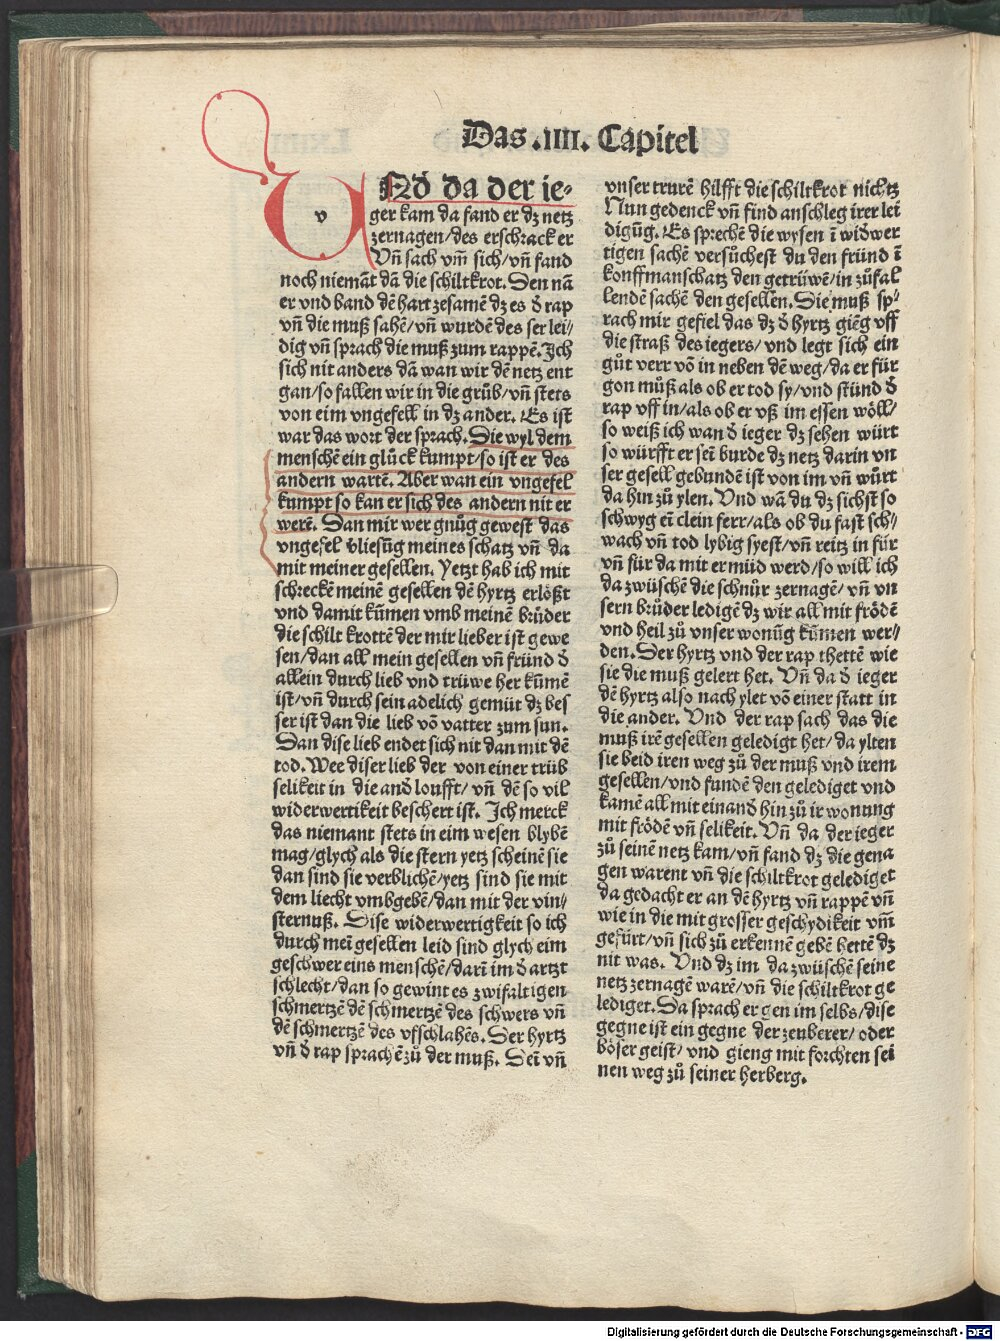 Das .IIII. Capitel
v
VNd da der ie⸗
ger kam da fand er dz netz
zernagen/des erschrack er
Vñ sach vm̃ sich/vñ fand
noch niemãt dã die schiltkrot. Den nã
er vnd band dẽ hart zesamẽ dz es d̕ rap
vñ die muß sahẽ/vñ wurdẽ des ser lei⸗
dig vñ sprach die muß zum rappẽ. Ich
sich nit anders dã wan wir dẽ netz ent
gan/so fallen wir in die grůb/vñ stets
von eim vngefell in dz ander. Es ist
war das wort der sprach. Die wyl dem
menschẽ ein glück kumpt/so ist er des
andern wartẽ. Aber wan ein vngefel
kumpt so kan er sich des andern nit er
werẽ. Dan mir wer gnůg gewest das
vngefel v̕liesũg meines schatz vñ da
mit meiner gesellen. Yetzt hab ich mit
schreckẽ meinẽ gesellen dẽ hyrtz erlößt
vnd damit kũmen vmb meinẽ brůder
die schilt krottẽ der mir lieber ist gewe
sen/dan all mein gesellen vñ fründ d̕
allein durch lieb vnd trüwe her kũmẽ
ist/vñ durch sein adelich gemüt dz bes
ser ist dan die lieb võ vatter zum sun.
Dan dise lieb endet sich nit dan mit dẽ
tod. Wee diser lieb der von einer trüb
selikeit in die and̕ loufft/ vñ dẽ so vil
widerwertikeit beschert ist. Ich merck
das niemant stets in eim wesen blybẽ
mag/glych als die stern yetz scheinẽ sie
dan sind sie verblichẽ/yetz sind sie mit
dem liecht vmbgebẽ/dan mit der vin⸗
sternuß. Dise widerwertigkeit so ich
durch meĩ gesellen leid sind glych eim
geschwer eins menschẽ/darĩ im d̕ artzt
schlecht/dan so gewint es zwifaltigen
schmertzẽ dẽ schmertzẽ des schwers vñ
dẽ schmertzẽ des vfschlahẽs. Der hyrtz
vñ d̕ rap sprachẽ zů der muß. Deĩ vñ
vnser trurẽ hilfft die schiltkrot nichtz
Nun gedenck vñ find anschleg irer lei
digũg. Es sprechẽ die wysen ĩ wid̕wer
tigen sachẽ versůchest du den fründ ĩ
konffmanschatz den getrüwẽ/in zůfal
lendẽ sachẽ den gesellẽ. Die muß sp⸗
rach mir gefiel das dz d̕ hyrtz giẽg vff
die straß des iegers/ vnd legt sich ein
gůt verr võ in neben dẽ weg/da er für
gon můß als ob er tod sy/vnd stünd d̕
rap vff in/als ob er vß im essen wöll/
so weiß ich wan d̕ ieger dz sehen würt
so würfft er seĩ burde dz netz darin vn
ser gesell gebundẽ ist von im vñ würt
da hin zů ylen. Vnd wã du dz sichst so
schwyg eĩ clein ferr/als ob du fast sch⸗
wach vñ tod lybig syest/vñ reitz in für
vñ für da mit er müd werd/so will ich
da zwüschẽ die schnůr zernagẽ/ vñ vn
sern brůder ledigẽ dz wir all mit frödẽ
vnd heil zů vnser wonũg kũmen wer⸗
den. Der hyrtz vnd der rap thettẽ wie
sie die muß gelert het. Vñ da d̕ ieger
dẽ hyrtz also nach ylet võ einer statt in
die ander. Vnd der rap sach das die
muß irẽ gesellen geledigt het/da ylten
sie beid iren weg zů der muß vnd irem
gesellen/vnd fundẽ den gelediget vnd
kamẽ all mit einand̕ hin zů ir wonung
mit frödẽ vñ selikeit. Vñ da der ieger
zů seinẽ netz kam/vñ fand dz die gena
gen warent vñ die schiltkrot gelediget
da gedacht er an dẽ hyrtz vñ rappẽ vñ
wie in die mit grosser geschydikeit vm̃
gefürt/vñ sich zů erkennẽ gebẽ hettẽ dz
nit was. Vnd dz im da zwüschẽ seine
netz zernagẽ warẽ/vñ die schiltkrot ge
lediget. Da sprach er gen im selbs/dise
gegne ist ein gegne der zeuberer/ oder
böser geist/ vnd gieng mit forchten sei
nen weg zů seiner herberg.
Digitalisierung gefördert durch die Deutsche Forschungsgemeinschaft - DFG